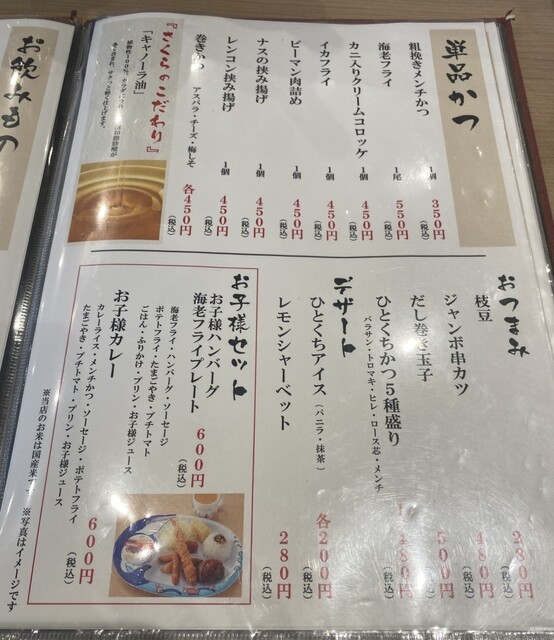 単品かつ
粗挽きメンチかつ 1個 350円(税込)
海老フライ 1尾 550円(税込)
カニ入りクリームコロッケ 1個 450円(税込)
イカフライ 1個 450円(税込)
ピーマン肉詰め 1個 450円(税込)
ナスの挟み揚げ 1個 450円(税込)
レンコン挟み揚げ 1個 450円(税込)
巻きかつ アスパラ・チーズ・梅しそ 各450円(税込)
『さくらのこだわり』
「キャノーラ油」
おつまみ
枝豆 280円(税込)
ジャンボ串カツ 480円(税込)
だし巻き玉子 500円(税込)
ひとくちかつ5種盛り
バラサン・トロマキ・ヒレ・ロース芯・メンチ
480円(税込)
デザート
ひとくちアイス(バニラ・抹茶) 各200円(税込)
レモンシャーベット 280円(税込)
お子様セット
お子様ハンバーグ
海老フライプレート 600円(税込)
海老フライ・ハンバーグ・ソーセージ
ポテトフライ・たまごやき・プチトマト
ごはん・ふりかけ・プリン・お子様ジュース
お子様カレー 600円(税込)
カレーライス・メンチかつ・ソーセージ・ポテトフライ
たまごやき・プチトマト・プリン・お子様ジュース
※当店のお米は国産米
※写真はイメージです
お飲みもの